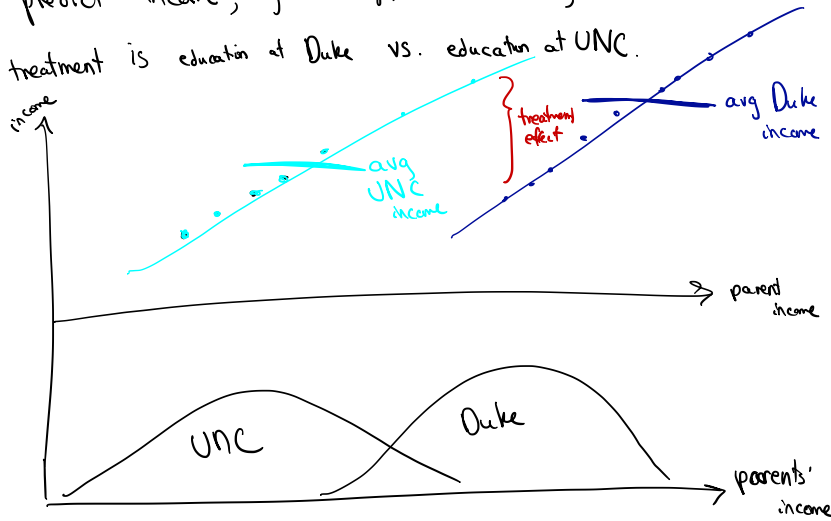 predict income,
treatment is education at Duke vs. education at UNC.
income
treatment
effect
avg Duke
income
avg
UNC
income
parent
income
UNC
Duke
parents'
income